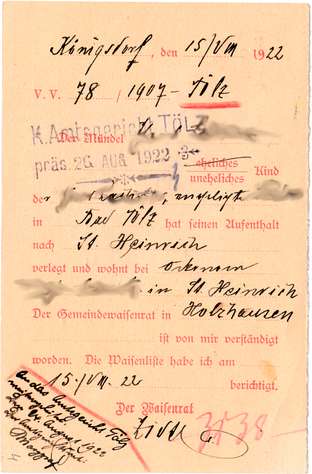 Königsdorf, den 15/VIII 1922
V. V. 78 / 1907 - Tölz
K. Amtsgericht Tölz
Der Mündel
präs. 26. AUG 1922
eheliches
uneheliches Kind
der
in Bad Tölz hat seinen Aufenthalt
nach St. Heinrich
verlegt und wohnt bei Ökonom
in St. Heinrich
Der Gemeindewaisenrat in Holzhausen
ist von mir verständigt
worden. Die Waisenliste habe ich am
15./VIII. 22 berichtigt.
Der Waisenrat
An das Amtsgericht Tölz
1922